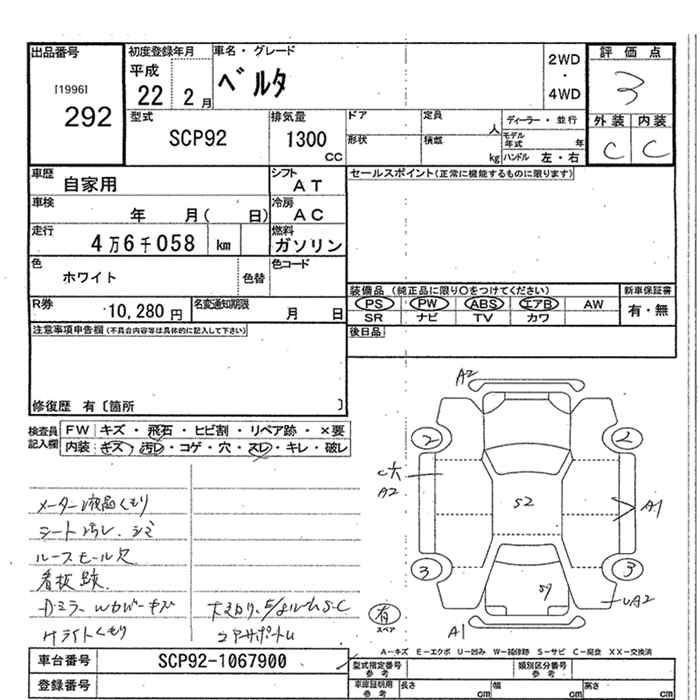 出品番号 初度登録年月 車名・グレード 評価点
[1996] 292 平成 22 2月 ベルタ 2WD・4WD 3
型式 排気量 ドア 定員 人 ディーラー・並行 外装 内装
SCP92 1300 CC 形状 積載 kg モデル年式 年 ハンドル 左・右 C C
車歴 自家用 シフト AT セールスポイント(正常に機能するものに限ります)
車検 年 月( 日) 冷房 AC
走行 4万6千058 km 燃料 ガソリン
色 ホワイト 色替 色コード
装備品 (純正品に限り○をつけてください) 新車保証書
R券 10,280 円 名変通知期限 月 日 PS PW ABS エアB AW 有・無
SR ナビ TV カワ
注意事項申告欄(不具合内容等は具体的に記入して下さい) 後日品
修復歴 有〔箇所 〕
検査員記入欄 FW キズ・飛石・ヒビ割・リペア跡・×要
内装:キズ・汚レ・コゲ・穴・スレ・キレ・破レ
A2
2 2
A2
S2
A1
3 3
S7
UA2
A1
メーター液晶くもり
シート汚レ、シミ
ルースモール欠
看板跡
DミラーWカバーキズ
Hライトくもり
コアサポートム
有
スペア
A-キズ E-エクボ U-凹み W-補修跡 S-サビ C-腐食 XX-交換済
車台番号 SCP92-1067900 型式指定番号 参考 類別区分番号 参考
登録番号 車庫証明用 参考 長さ cm 幅 cm 高さ cm